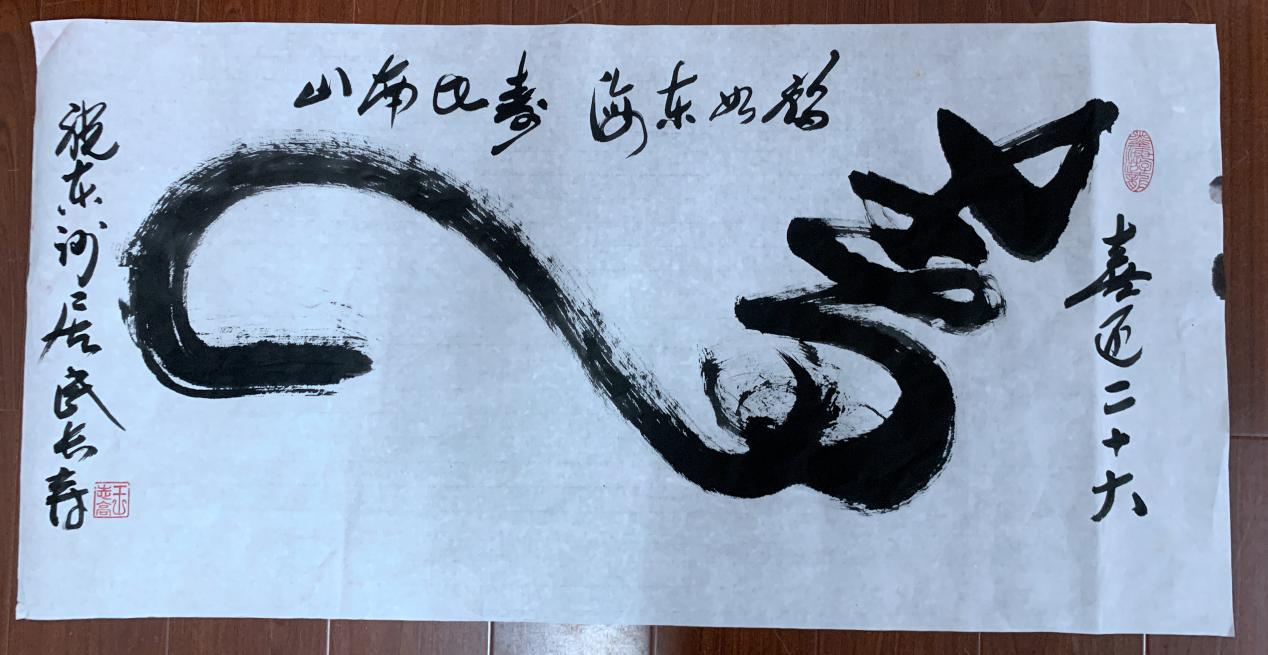 喜迎二十大
福如东海寿比南山
祝东洲居民长寿